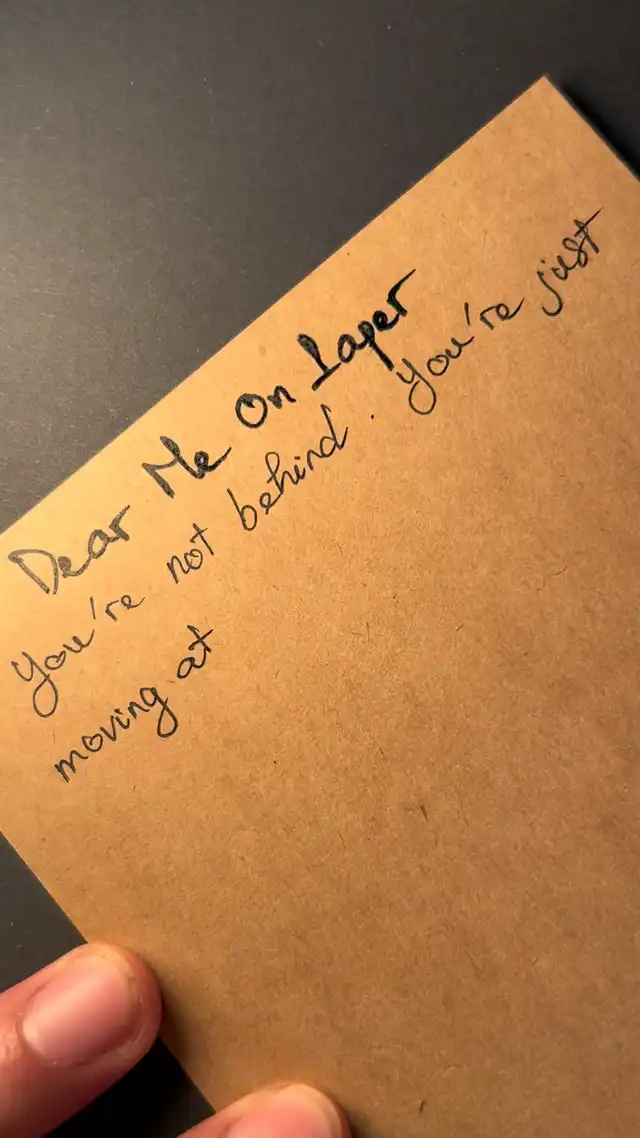 Dear Me On Paper
You're not behind. You're just
moving at